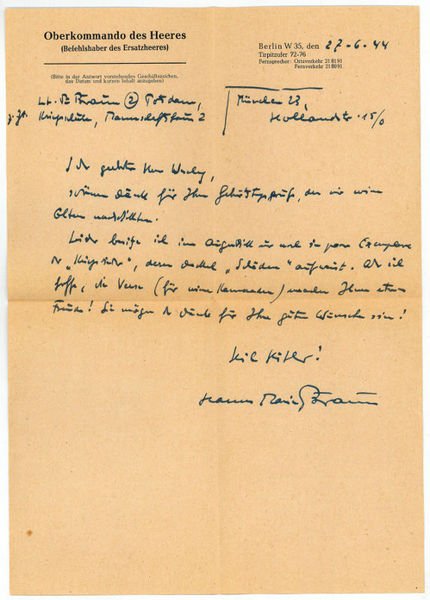 Oberkommando des Heeres
(Befehlshaber des Ersatzheeres)
(Bitte in der Antwort vorstehendes Geschäftszeichen,
das Datum und kurzen Inhalt anzugeben)
Berlin W 35, den 27-6.44
Tirpitzufer 72-76
Fernsprecher: Ortsverkehr 21 81 91
Fernverkehr 21 80 91
Lt. Braun (2) Potsdam,
z. Zt. Kriegsschule, 2
München 23,
Hollandstr. 15/0
Sehr geehrter Herr
schönen Dank für Ihre Geburtstagsgrüße, die mir meine
Eltern nachschickten.
Leider besitze ich im Augenblick nur noch ein paar Exemplare
der " ", deren "Schäden" aufweist. Aber ich
hoffe, die Verse (für meine Kameraden) machen Ihnen etwas
Freude! Sie mögen Dank für Ihre guten Wünsche sein!
Heil Hitler!
Hanns Maria Braun